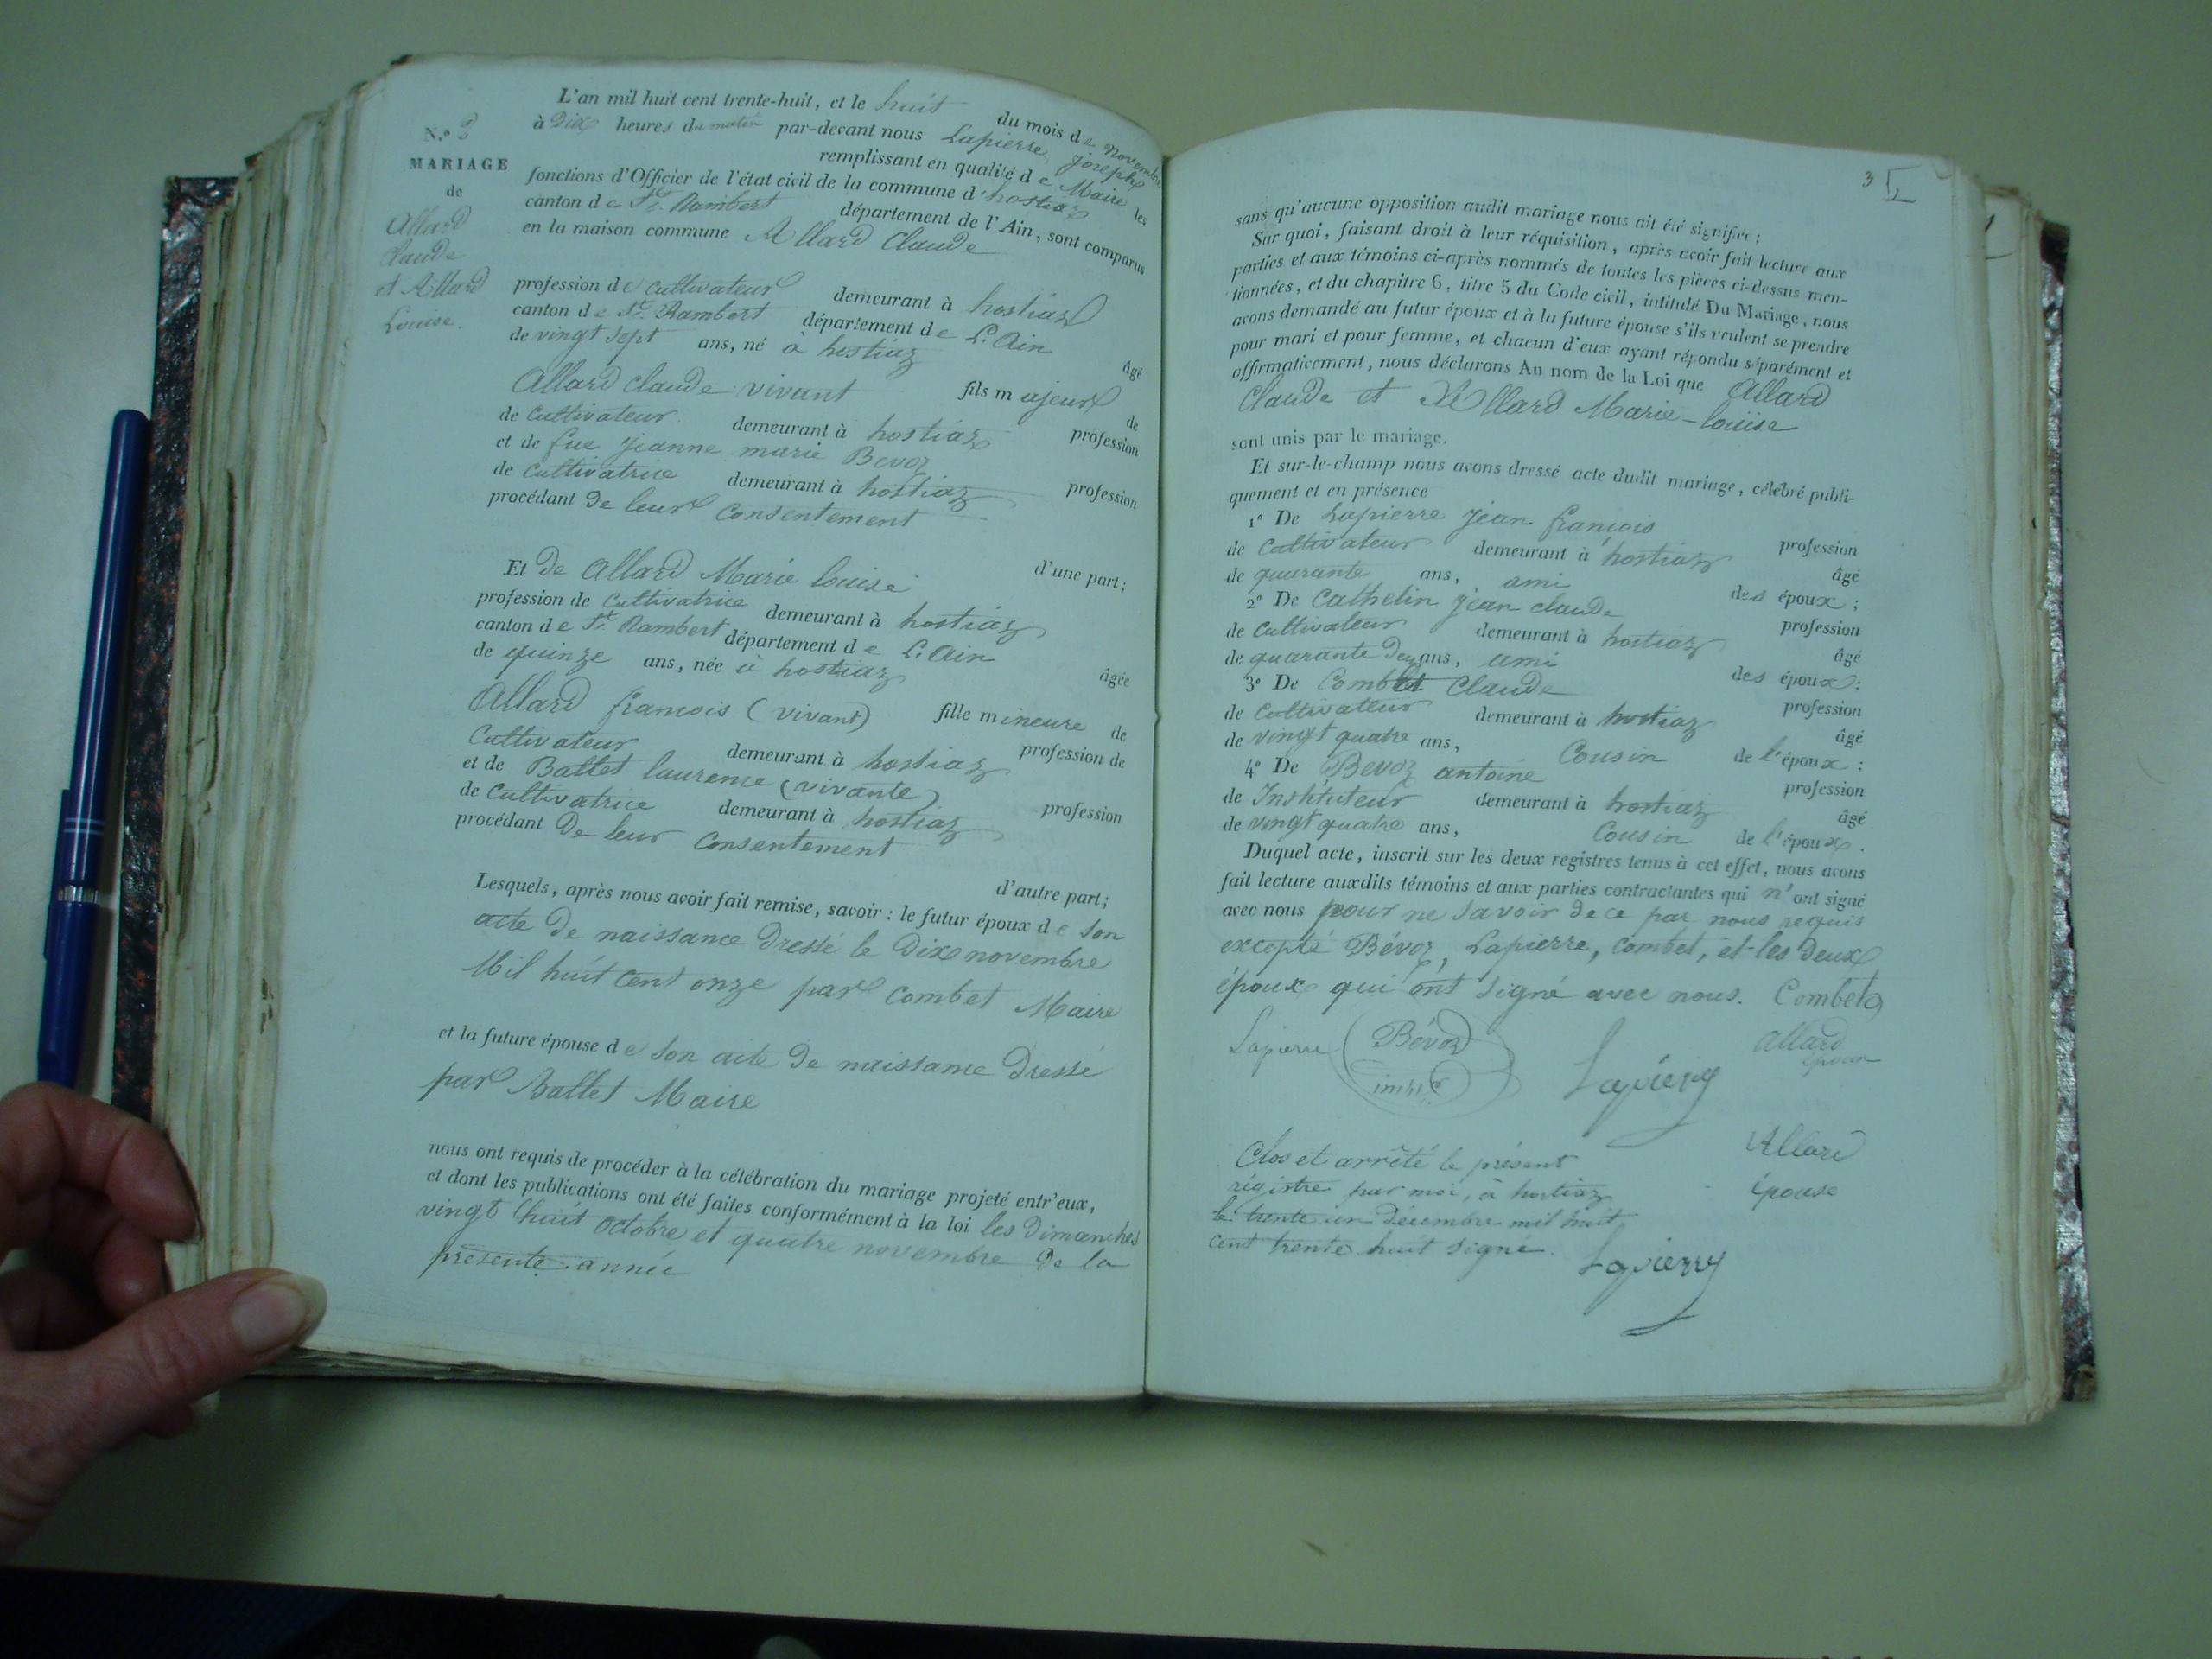 L'an mil huit cent trente-huit, et le huit du mois de novembre
à Dix heures du matin par-devant nous Lapierre joseph
remplissant en qualité de Maire les
fonctions d'Officier de l'état civil de la commune d'hostiaz
canton de St. Rambert département de l'Ain, sont comparus
en la maison commune Allard Claude
profession de cultivateur demeurant à hostiaz
canton de St. Rambert département de L'Ain âgé
de vingt sept ans, né à hostiaz
fils majeur de
Allard claude vivant profession
de cultivateur demeurant à hostiaz
et de fue Jeanne marie Bevoz profession
de cultivatrice demeurant à hostiaz
procédant de leur consentement
d'une part;
Et de Allard Marie louise
profession de cultivatrice demeurant à hostiaz
canton de St. Rambert département de L'Ain âgée
de quinze ans, née à hostiaz
fille mineure de
Allard francois (vivant) profession de
Cultivateur demeurant à hostiaz
et de Ballet laurence (vivante) profession
de cultivatrice demeurant à hostiaz
procédant De leur consentement
d'autre part;
Lesquels, après nous avoir fait remise, savoir : le futur époux de son
acte De naissance Dressé le Dix novembre
Mil huit cent onze par Combet Maire
et la future épouse de son acte De naissance Dressé
par Ballet Maire
nous ont requis de procéder à la célébration du mariage projeté entr'eux,
et dont les publications ont été faites conformément à la loi les Dimanches
vingt huit octobre et quatre novembre De la
présente année
N.° 3
MARIAGE
de
Allard
Claude
et Allard
Louise.
3
sans qu'aucune opposition audit mariage nous ait été signifiée;
Sur quoi, faisant droit à leur réquisition, après avoir fait lecture aux
parties et aux témoins ci-après nommés de toutes les pièces ci-dessus men-
tionnées, et du chapitre 6, titre 5 du Code civil, intitulé Du Mariage, nous
avons demandé au futur époux et à la future épouse s'ils veulent se prendre
pour mari et pour femme, et chacun d'eux ayant répondu séparément et
affirmativement, nous déclarons Au nom de la Loi que Allard
Claude et Allard Marie-louise
sont unis par le mariage.
Et sur-le-champ nous avons dressé acte dudit mariage, célébré publi-
quement et en présence
1° De Lapierre Jean françois profession
de Cultivateur demeurant à hostiaz âgé
de quarante ans, ami des époux;
2° De Cathelin Jean claude profession
de cultivateur demeurant à hostiaz âgé
de quarante Deux ans, ami des époux:
3° De Combet Claude profession
de cultivateur demeurant à hostiaz âgé
de vingt quatre ans, Cousin de l'époux;
4° De Bevoz antoine profession
de Instituteur demeurant à hostiaz âgé
de vingt quatre ans, Cousin de l'époux.
Duquel acte, inscrit sur les deux registres tenus à cet effet, nous avons
fait lecture auxdits témoins et aux parties contractantes qui n'ont signé
avec nous pour ne savoir de ce par nous requis
excepté Bévoz, Lapierre, Combet, et les Deux
époux qui ont signé avec nous. Combet
Lapierre Bévoz Lapierre Allard
époux
Allard
épouse
Clos et arrêté le présent
régistre par moi, à hostiaz
le trente un Décembre mil huit
cent trente huit signé. Lapierre